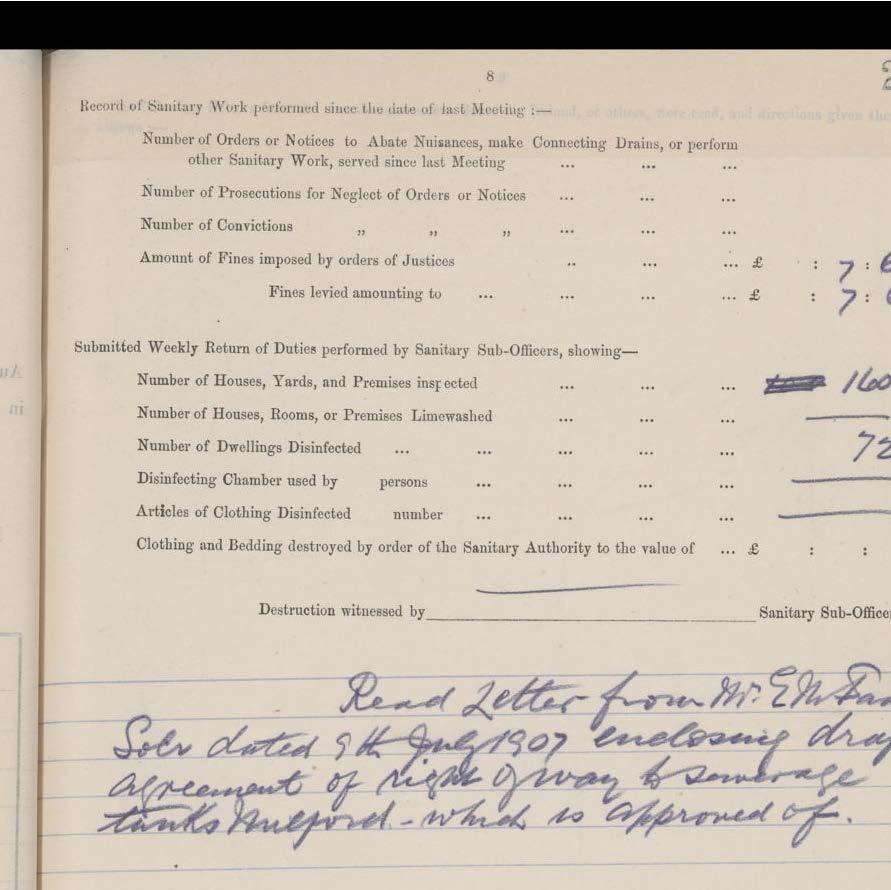 8
Record of Sanitary Work performed since the date of last Meeting :—
Number of Orders or Notices to Abate Nuisances, make Connecting Drains, or perform
other Sanitary Work, served since last Meeting ... ... ...
Number of Prosecutions for Neglect of Orders or Notices ... ... ...
Number of Convictions „ „ „ ... ... ...
Amount of Fines imposed by orders of Justices .. ... ... £ : 7 : 6
Fines levied amounting to ... ... ... ... £ : 7 :
Submitted Weekly Return of Duties performed by Sanitary Sub-Officers, showing—
Number of Houses, Yards, and Premises inspected ... ... ... 160
Number of Houses, Rooms, or Premises Limewashed ... ... ...
Number of Dwellings Disinfected ... ... ... ... ... 72
Disinfecting Chamber used by persons ... ... ... ...
Articles of Clothing Disinfected number ... ... ... ...
Clothing and Bedding destroyed by order of the Sanitary Authority to the value of ... £ : :
Destruction witnessed by Sanitary Sub-Officer
Read Letter from Mr. E
Solr dated 9th July 1907 enclosing
agreement of right of way to sewerage
tanks Milford - which is approved of.